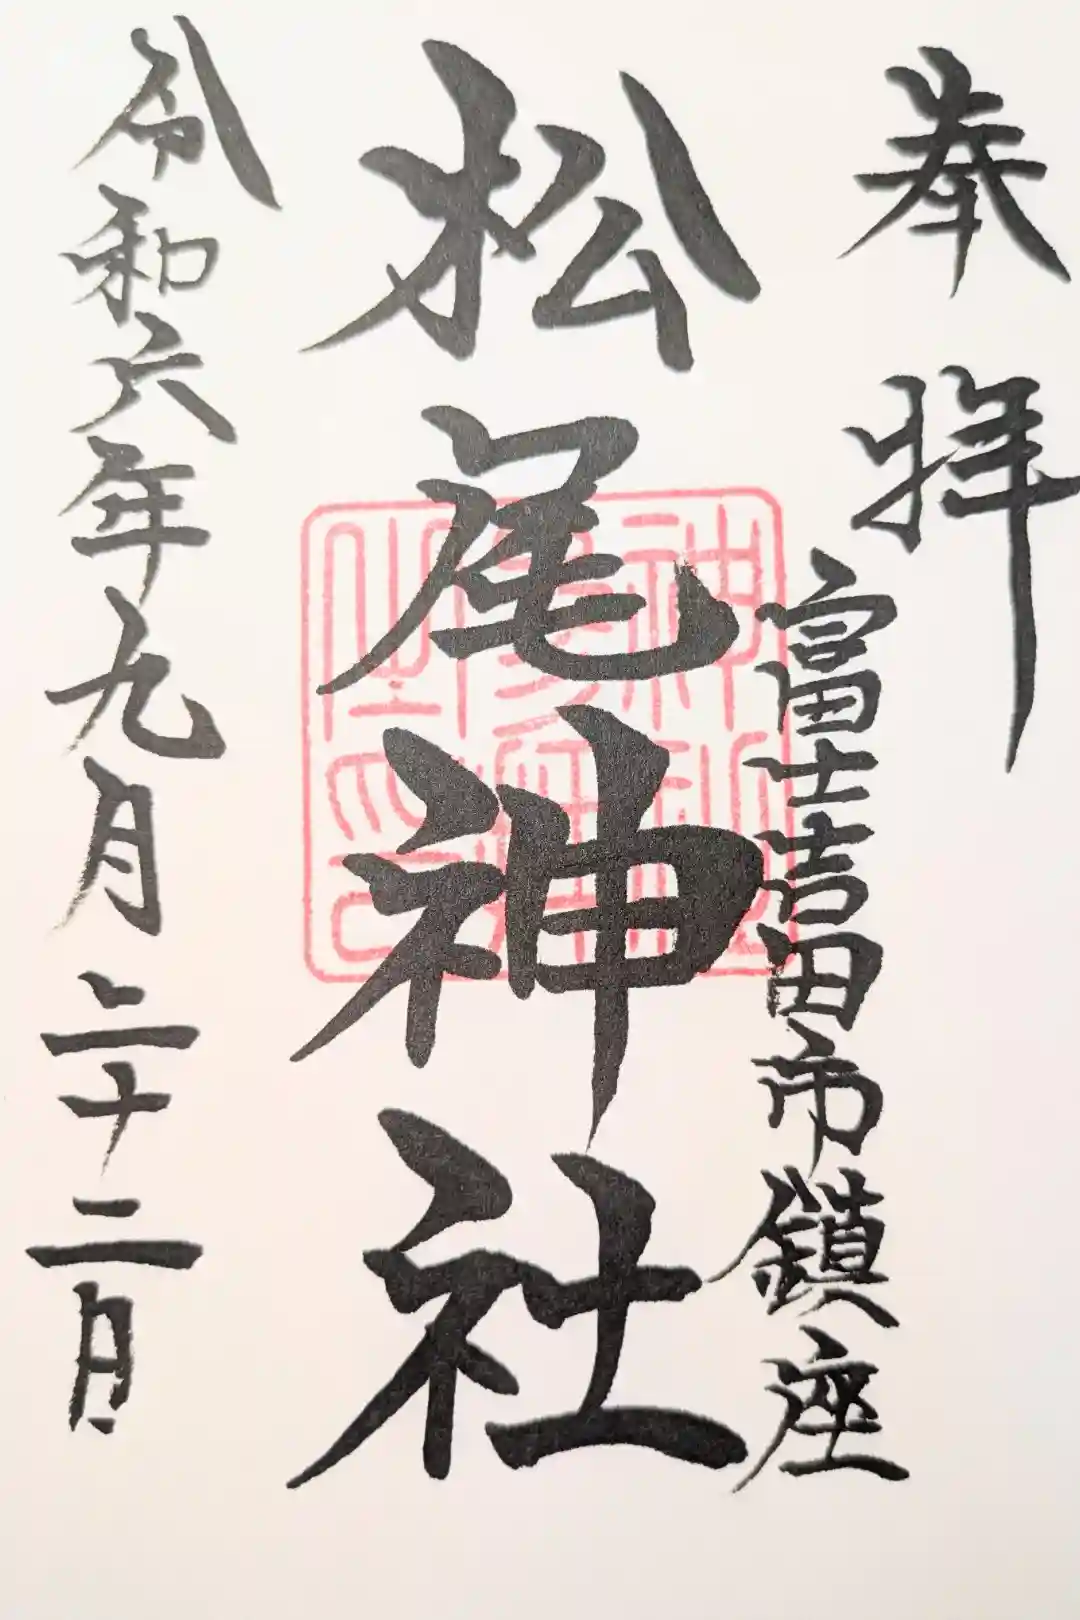 奉拝
富士吉田市鎮座
松尾神社
令和六年九月二十二日